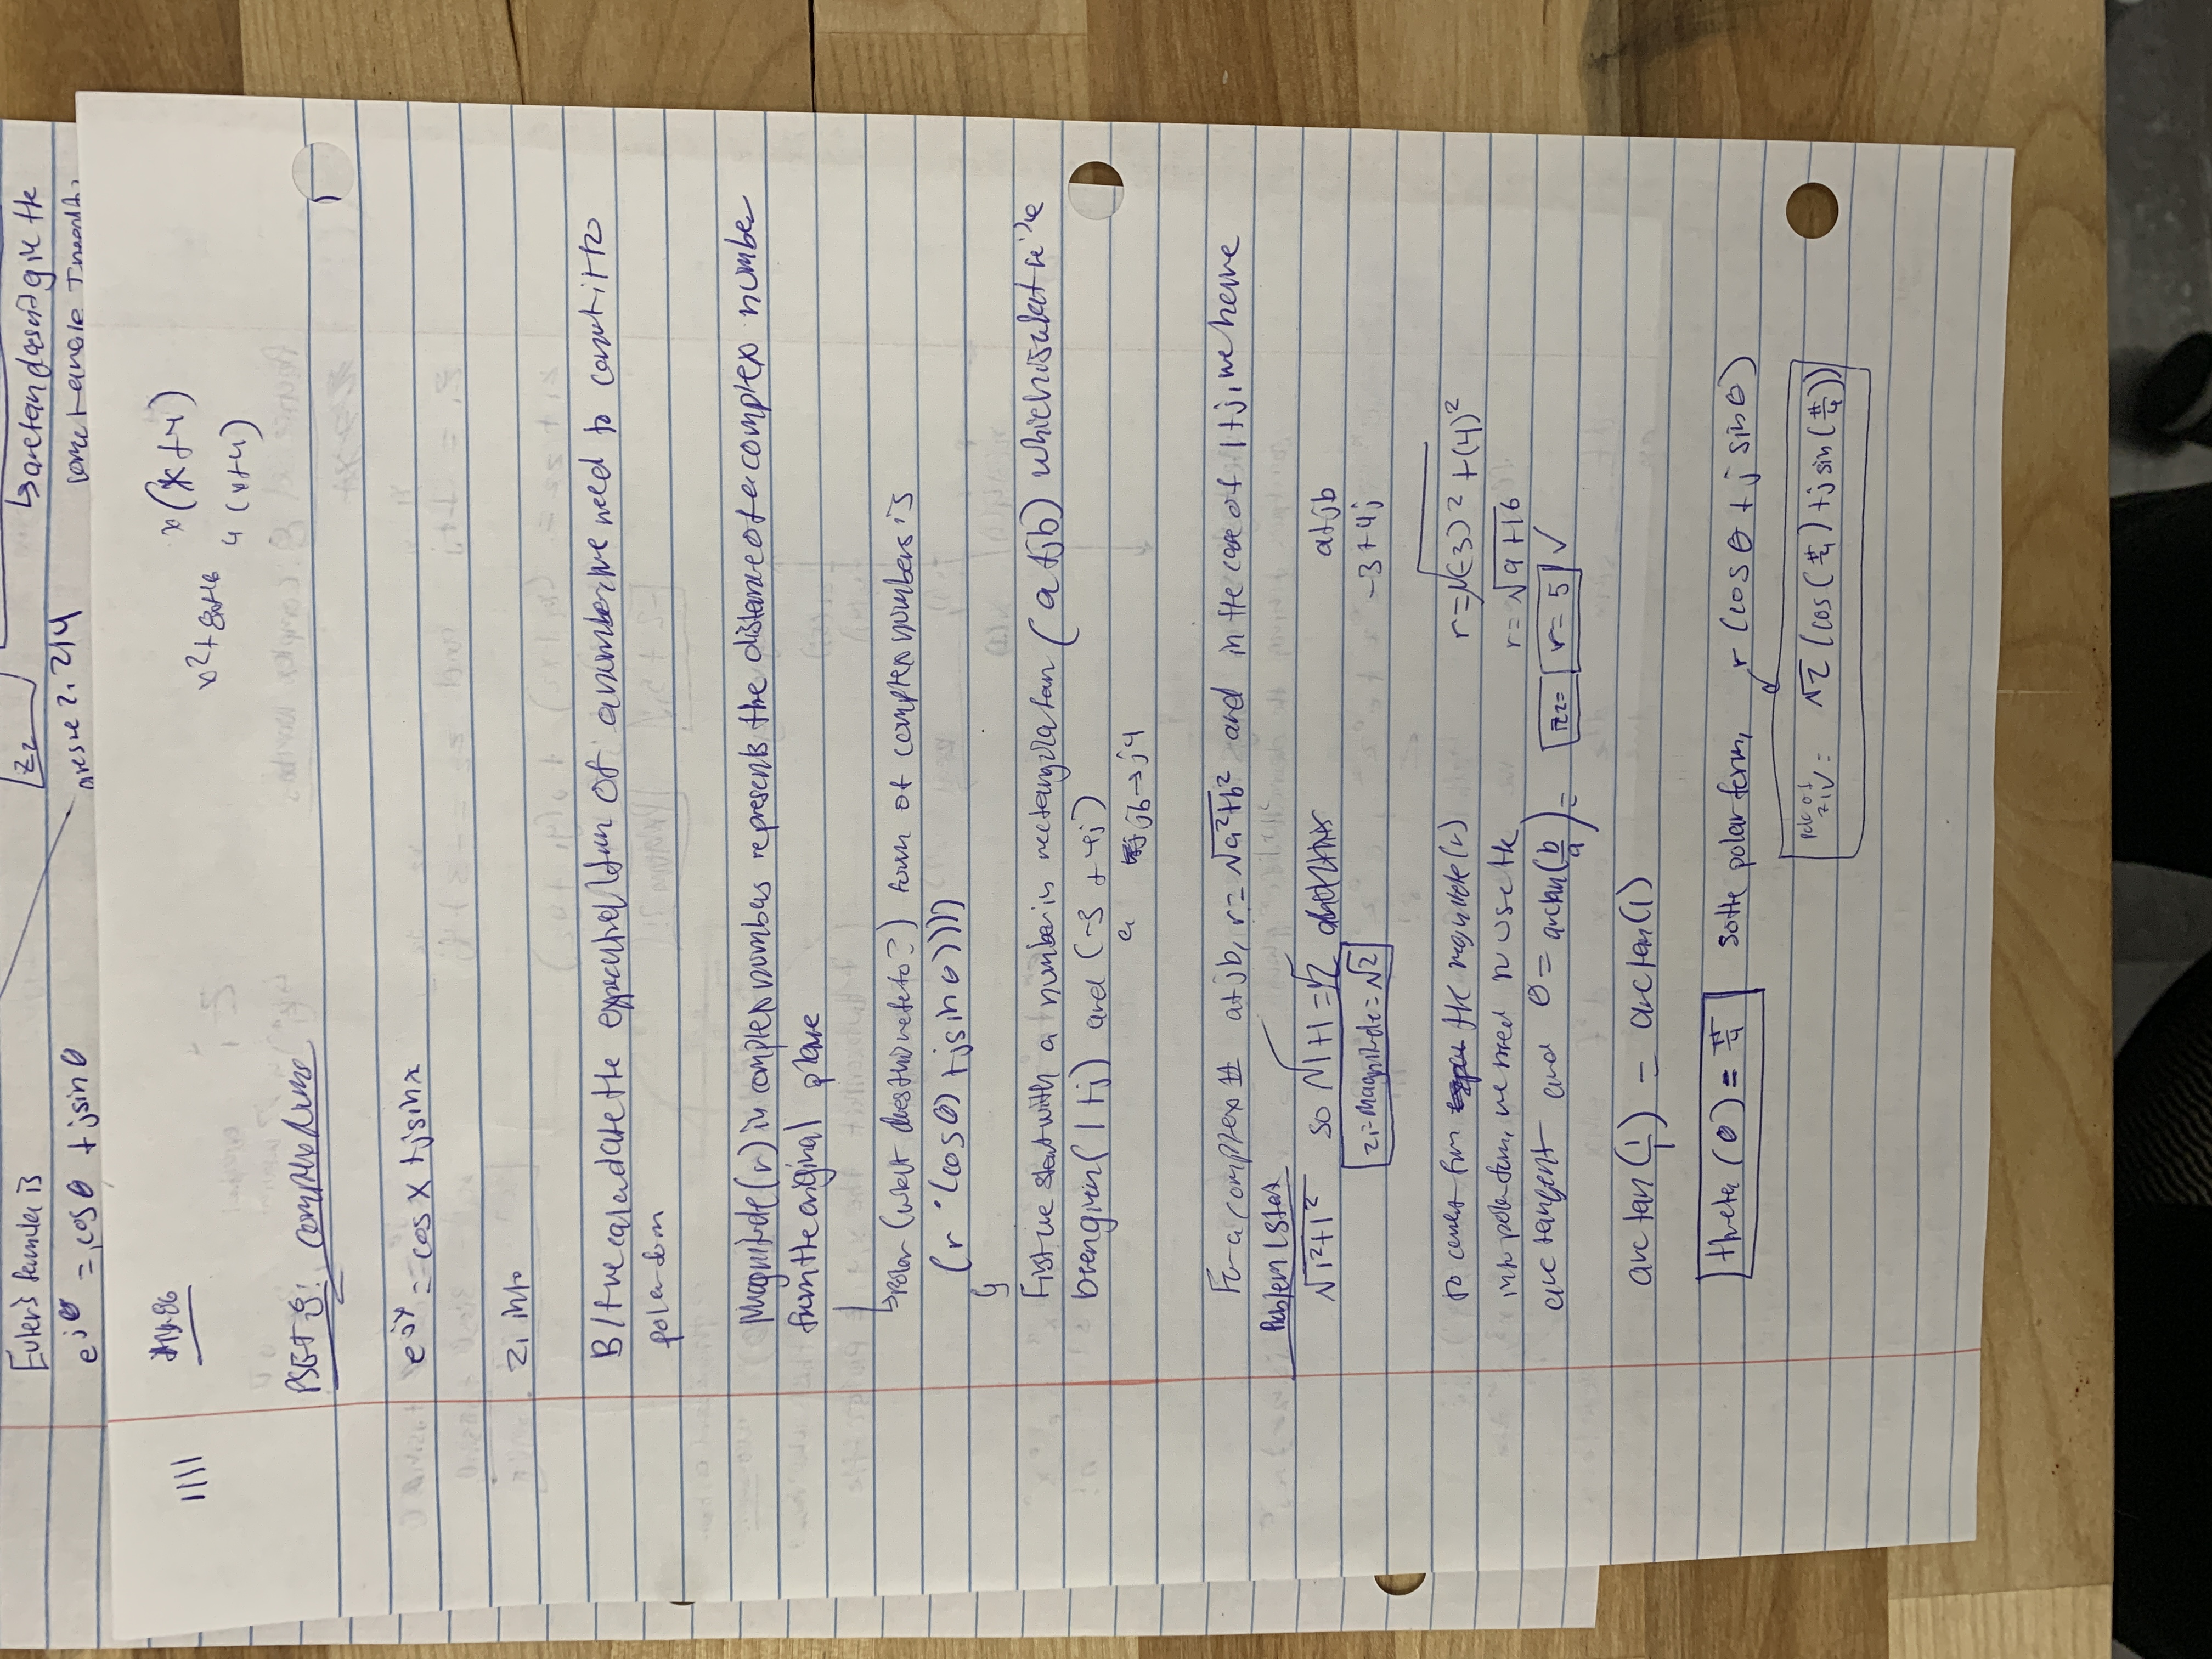 Euler's formula is
e^jθ = cosθ + jsinθ
z2
gives us 2.214
↳ arctan doesn't give the
correct angle I need
||||
x(x+4)
x²+8x+16
4(x+4)
PSET 8: complex nums
e^jx = cosx + jsinx
z1 into
B/f we calculate the exponential form of a number we need to convert it to
polar form
Magnitude (r) in complex numbers represents the distance of a complex number
from the original plane
↳ Polar (what does this refer to?) form of complex numbers is
(r·(cosθ) + jsinθ))))
↳
First we start with a number in rectangular form (a+jb) which is what we've
been given (1+j) and (-3 + 4j)
a jb→j4
For a complex # a+jb, r=√a²+b² and in the case of 1+j, we have
Problem 1 Start
√1²+1² so √1+1 = √2
z1=magnitude=√2
a+jb
-3+4j
to convert from the magnitude(r)
into polar form, we need to use the
arc tangent and θ = arctan(b/a) =
r=√(-3)²+(4)²
r=√9+16
z2= r=5 ✓
arctan(1/1) = arctan(1)
theta (θ) = π/4 So the polar form, r (cosθ + j sinθ)
z1 = √2 (cos(π/4) + j sin(π/4))